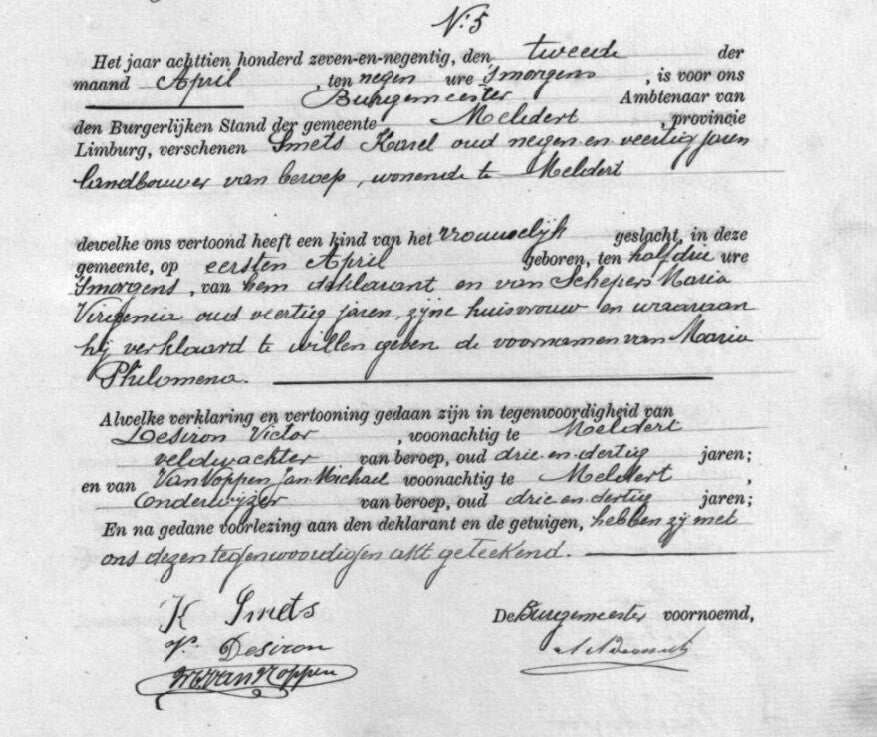 N: 5
Het jaar achttien honderd zeven-en-negentig, den tweede der
maand April, ten negen ure Smorgens, is voor ons
Burgemeester Ambtenaar van
den Burgerlijken Stand der gemeente Meldert, provincie
Limburg, verschenen Smets Karel oud negen en veertig jaren
landbouwer van beroep, wonende te Meldert
dewelke ons vertoond heeft een kind van het vrouwelijk geslacht, in deze
gemeente, op eersten April geboren, ten half drie ure
Smorgens, van hem deklarant en van Schepers Maria
Virginia oud veertig jaren, zijne huisvrouw en waaraan
hij verklaard te willen geven de voornamen van Maria
Philomena.
Alwelke verklaring en vertooning gedaan zijn in tegenwoordigheid van
Desiron Victor, woonachtig te Meldert
veldwachter van beroep, oud drie en dertig jaren;
en van Van Noppen Jan Michael woonachtig te Meldert,
Onderwijzer van beroep, oud drie en dertig jaren;
En na gedane voorlezing aan den deklarant en de getuigen, hebben zij met
ons dezen tegenwoordigen akt geteekend.
K Smets
De Burgemeester voornoemd,
V. Desiron
Van Noppen